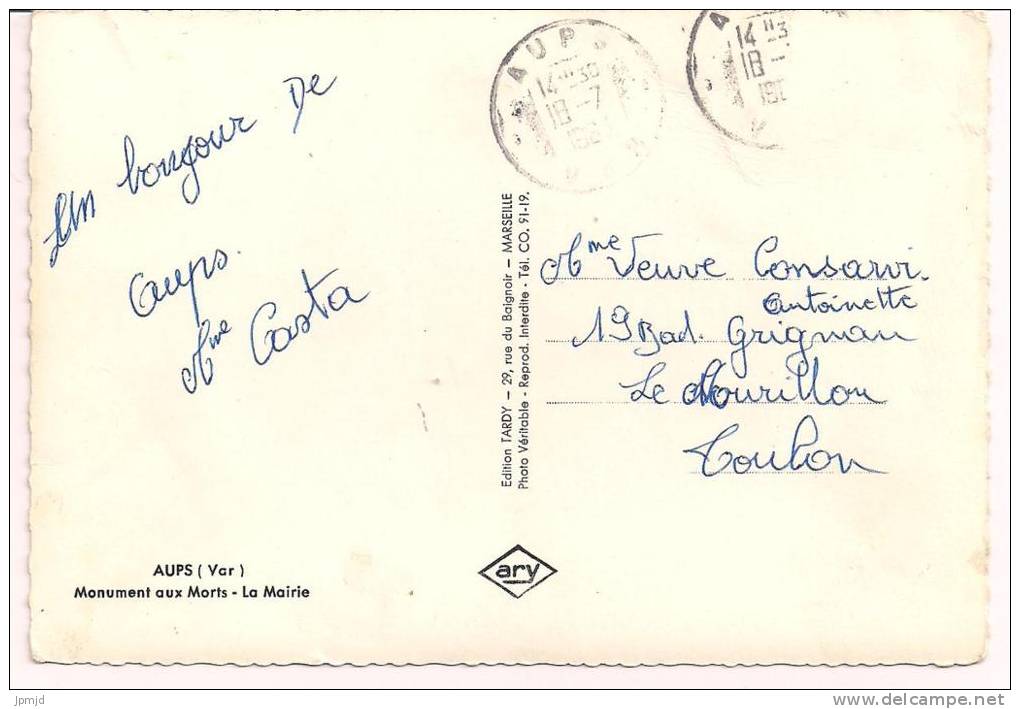 Un bonjour De
Aups.
Mme Casta
AUPS ( Var )
Monument aux Morts - La Mairie
Edition TARDY – 29, rue du Baignoir – MARSEILLE
Photo Véritable - Reprod. Interdite - Tél. CO. 91-19.
ary
AUPS
14H30
18-7
14H3
18-
Mme Veuve Consarvi.
Antoinette
19 Bad. Grignan
Le Mourillon
Toulon
jpmjd
www.delcampe.net